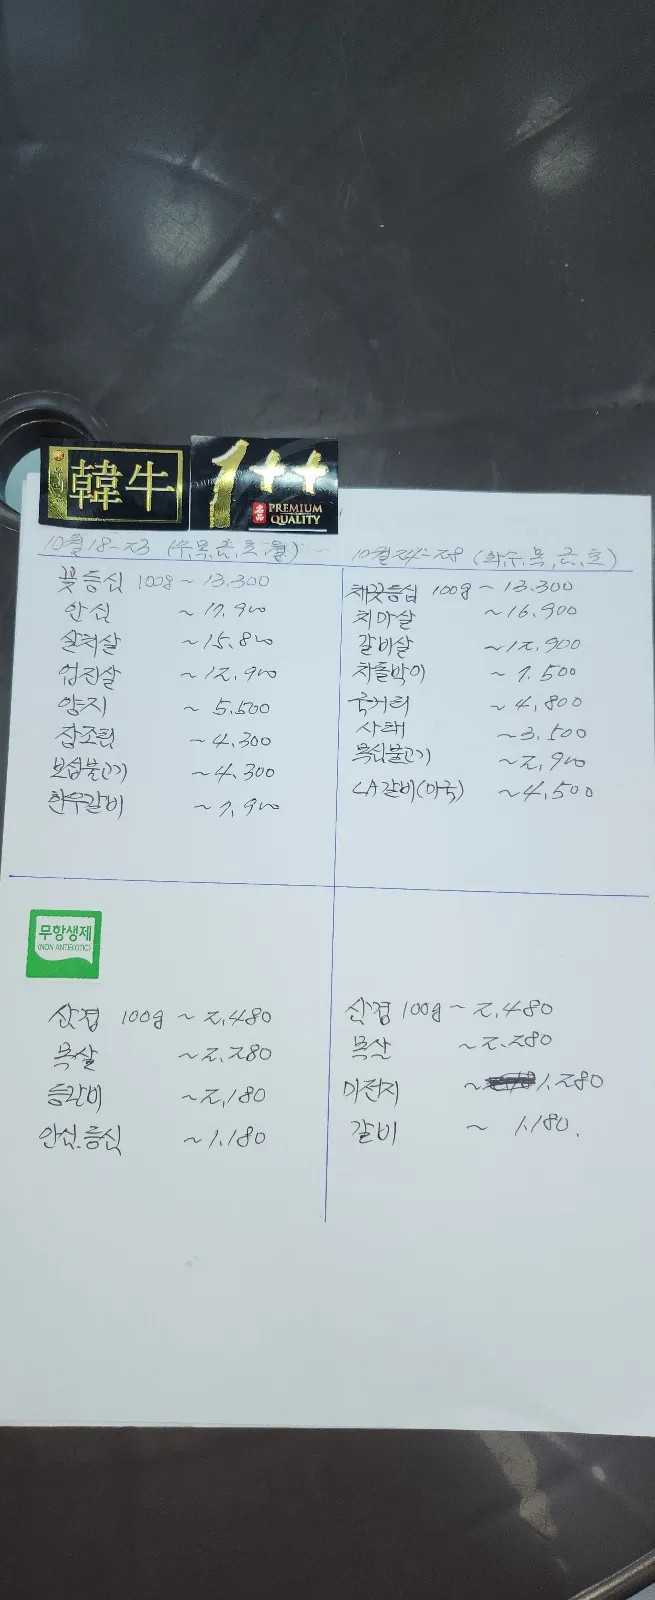 韓牛
1++
PREMIUM
QUALITY
10월 18~23 (수,목,금,토,월)
꽃등심 100g ~ 13.300
안심 ~ 17.900
살치살 ~ 15.800
업진살 ~ 12.900
양지 ~ 5.500
장조림 ~ 4.300
보섭불고기 ~ 4.300
한우갈비 ~ 7.900
10월 24~28 (화,수,목,금,토)
채끝등심 100g ~ 13.300
치마살 ~ 16.900
갈비살 ~ 12.900
차돌박이 ~ 7.500
국거리 ~ 4.800
사태 ~ 3.500
목심불고기 ~ 2,900
LA갈비(미국) ~ 4,500
무항생제
(NON ANTIBIOTIC)
삼겹 100g ~ 2,480
목살 ~ 2.280
등갈비 ~ 2,180
안심.등심 ~ 1.180
삼겹 100g ~ 2,480
목살 ~ 2.280
미전지 ~ 1.280
갈비 ~ 1.180.